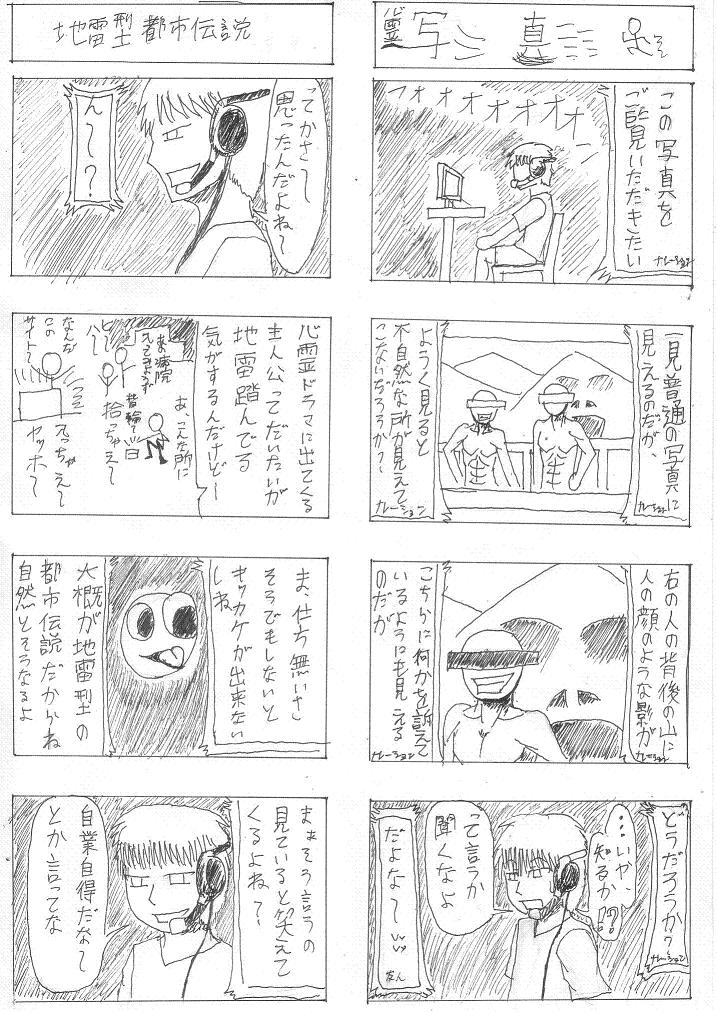 心霊写真
オオオオオオオン
この写真を
ご覧いただきたい
ナレーション
一見普通の写真に
見えるのだが、
ナレーション
ようく見ると
不自然な所が見えて
こないだろうか？
ナレーション
右の人の背後の山に
人の顔のような影が
ナレーション
こちらに何かを訴えて
いるようにも見える
のだが
ナレーション
どうだろうか？
ナレーション
…いや、
知るか！？
って言うか
聞くなよ
だよな〜ww
友人
地雷型都市伝説
ってかさ〜
思ったんだよね〜
ん〜？
心霊ドラマに出てくる
主人公ってだいたいが
地雷踏んでる
気がするんだけど〜
あ、こんな所に
拾っちゃえ〜
なんだ
この
サイト〜
えっちゃえ〜
ヤッホ〜
ま、仕方無いさ
そうでもしないと
キッカケが出来ない
しね
大概が地雷型の
都市伝説だからね
自然とそうなるよ
まぁそう言うの
見ていると笑えて
くるよね〜
自業自得だな〜
とか言ってな